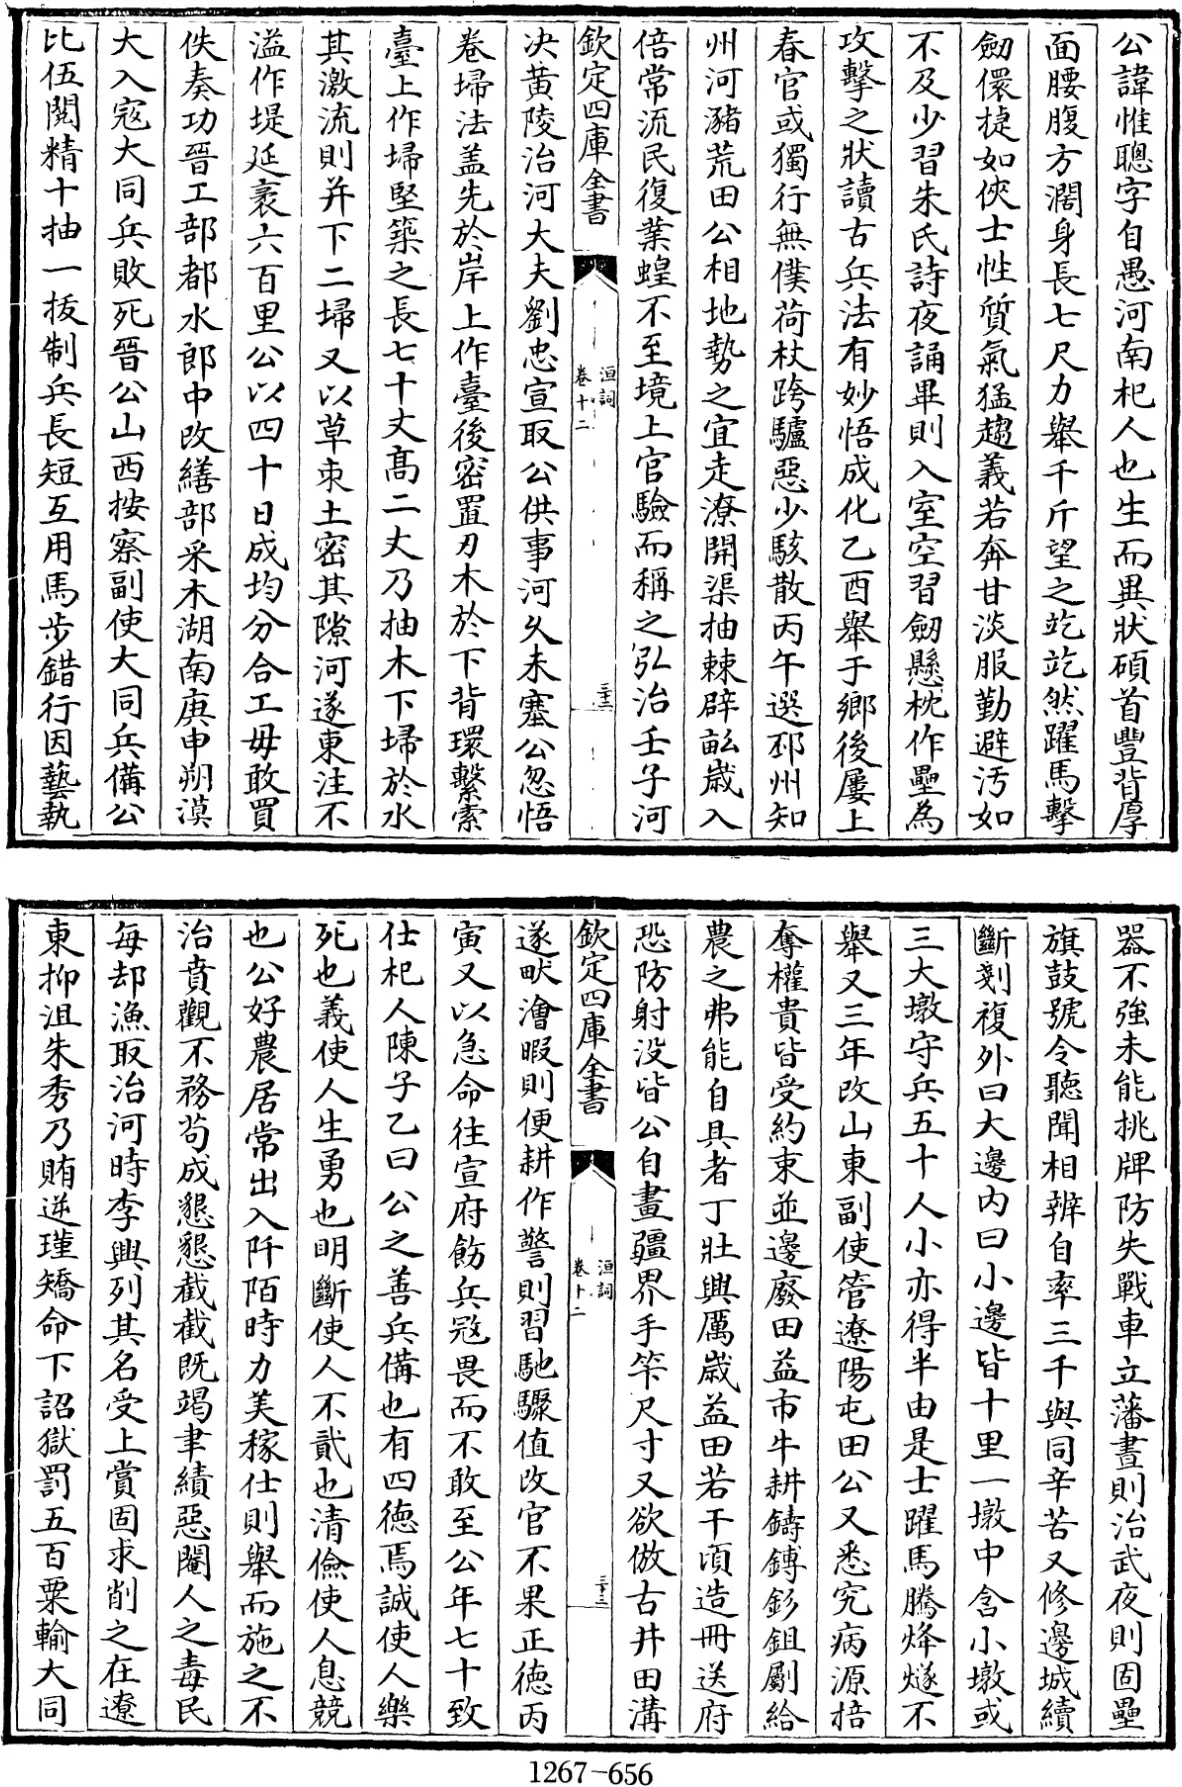 公諱惟聰字自愚河南杞人也生而異狀碩首豐背厚
面腰腹方濶身長七尺力舉千斤望之竑竑然躍馬擊
劒儇捷如俠士性質氣猛趨義若奔甘淡服勤避汚如
不及少習朱氏詩夜誦畢則入室空習劒懸枕作壘為
攻擊之狀讀古兵法有妙悟成化乙酉舉于鄉後屢上
春官或獨行無僕荷杖跨驢惡少駭散丙午選邳州知
州河瀦荒田公相地勢之宜走潦開渠抽棘辟畆歲入
倍常流民復業蝗不至境上官驗而稱之弘治壬子河
欽定四庫全書 洹詞 卷十二 三十三
决黄陵治河大夫劉忠宣取公供事河久未塞公忽悟
卷埽法盖先於岸上作臺後密置刃木於下背環繫索
臺上作埽堅築之長七十丈髙二丈乃抽木下埽於水
其激流則并下二埽又以草朿土密其隙河遂東注不
溢作堤延袤六百里公以四十日成均分合工毋敢買
佚奏功晉工部都水郎中改繕部采木湖南庚申朔漠
大入冦大同兵敗死晉公山西按察副使大同兵備公
比伍閱精十抽一拔制兵長短互用馬步錯行因藝執
器不強未能挑牌防失戰車立藩晝則治武夜則固壘
旗鼓號令聽聞相辨自率三千與同辛苦又修邊城續
斷剗複外曰大邊内曰小邊皆十里一墩中含小墩或
三大墩守兵五十人小亦得半由是士躍馬騰烽燧不
舉又三年改山東副使管遼陽屯田公又悉究病源掊
奪權貴皆受約束並邊廢田益市牛耕鑄鎛釤鉏劚給
農之弗能自具者丁壯興厲歲益田若干頃造冊送府
恐防射没皆公自畫疆界手筭尺寸又欲倣古井田溝
欽定四庫全書 洹詞 卷十二 三十三
遂畎澮暇則便耕作警則習馳驟值改官不果正德丙
寅又以急命往宣府飭兵冦畏而不敢至公年七十致
仕杞人陳子乙曰公之善兵備也有四德焉誠使人樂
死也義使人生勇也明斷使人不貳也清儉使人息競
也公好農居常出入阡陌時力美稼仕則舉而施之不
治賁觀不務茍成懇懇截截旣竭聿績惡閹人之毒民
每却漁取治河時李興列其名受上賞固求削之在遼
東抑沮朱秀乃賄逆瑾矯命下詔獄罰五百粟輸大同
1267-656